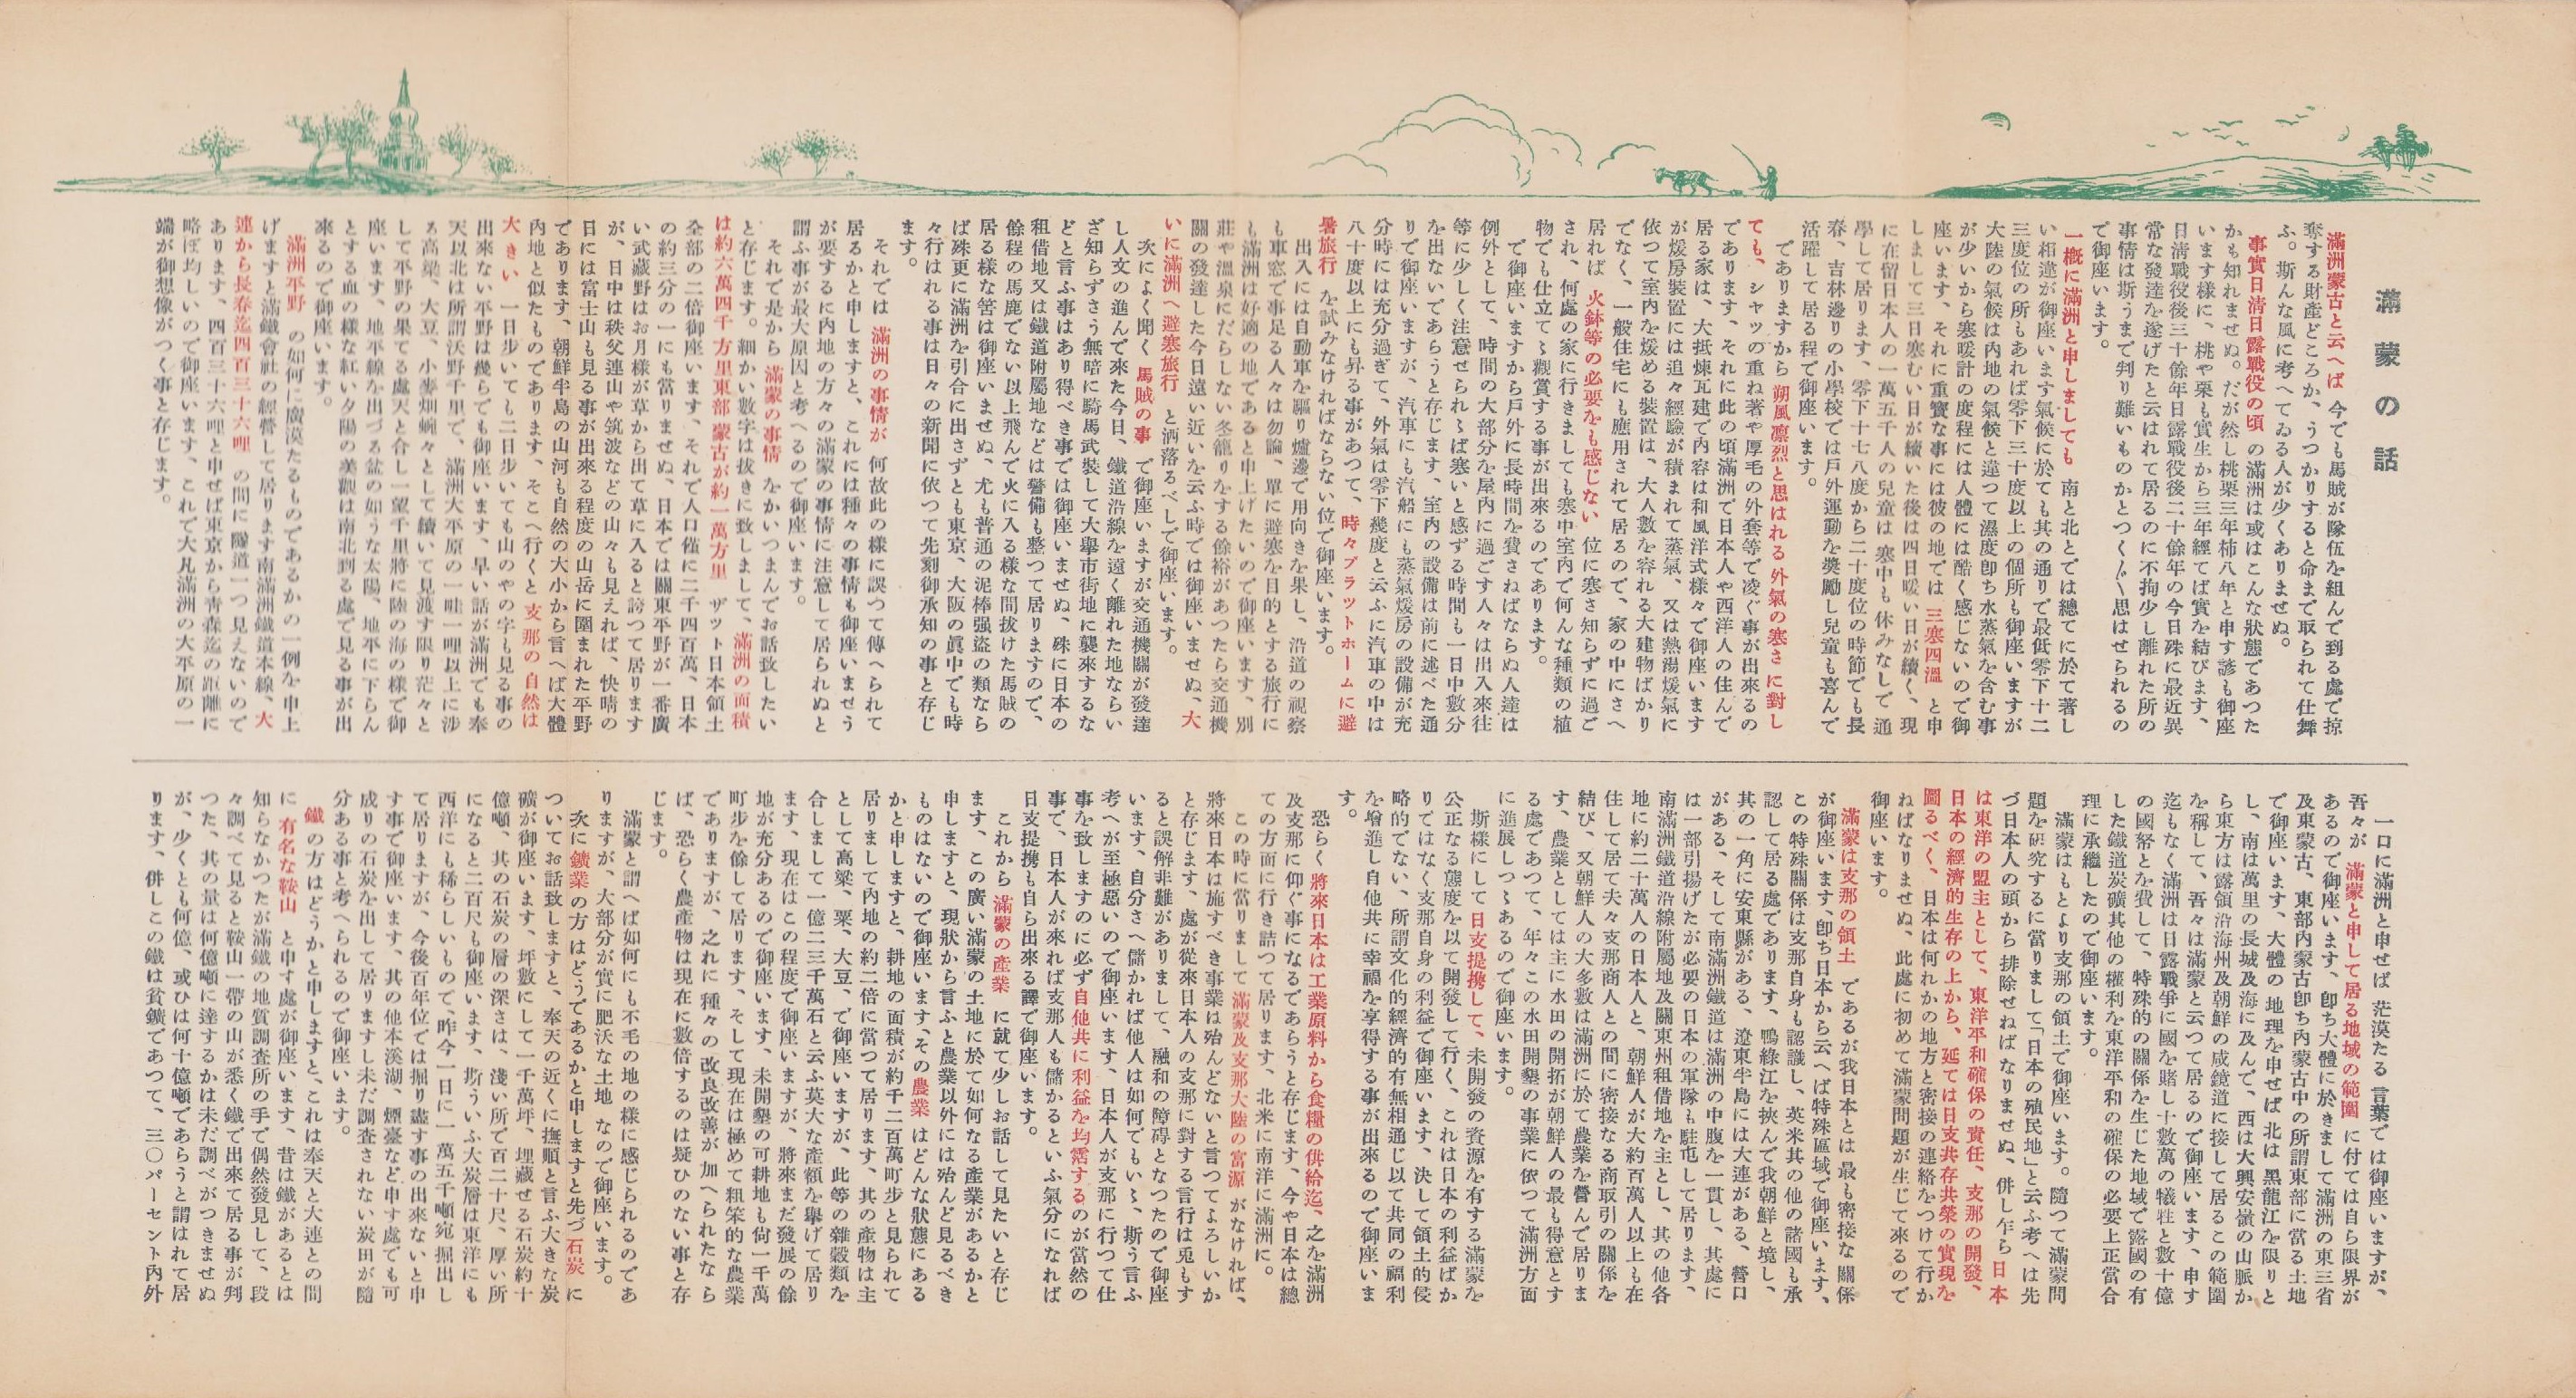 滿蒙の話
滿洲蒙古と云へば 今でも馬賊が隊伍を組んで到る處で掠
奪する財產どころか、うつかりすると命まで取られて仕舞
ふ。斯んな風に考へてゐる人が少くありませぬ。
事實日清日露戰役の頃 の滿洲は或はこんな狀態であつた
かも知れませぬ。だが然し桃栗三年柿八年と申す諺も御座
います樣に、桃や栗も實生から三年經てば實を結びます、
日清戰役後三十餘年日露戰役後二十餘年の今日殊に最近異
常な發達を遂げたと云はれて居るのに不拘少し離れた所の
事情は斯うまで判り難いものかとつく〲思はせられるの
で御座います。
一槪に滿洲と申しましても 南と北とでは總てに於て著し
い相違が御座います氣候に於ても其の通りで最低零下十二
三度位の所もあれば零下三十度以上の個所も御座いますが
大陸の氣候は內地の氣候と違つて濕度卽ち水蒸氣を含む事
が少いから寒暖計の度程には人體には酷く感じないので御
座います、それに重寶な事には彼の地では 三寒四溫 と申
しまして三日寒むい日が續いた後は四日暖い日が續く、現
に在留日本人の一萬五千人の兒童は 寒中も休みなしで 通
學して居ります、零下十七八度から二十度位の時節でも長
春、吉林邊りの小學校では戶外運動を奬勵し兒童も喜んで
活躍して居る程で御座います。
でありますから 朔風凛烈と思はれる外氣の寒さに對し
ても、シャツの重ね著や厚毛の外套等で凌ぐ事が出來るの
であります、それに此の頃滿洲で日本人や西洋人の住んで
居る家は、大抵煉瓦建で內容は和風洋式樣々で御座います
が煖房裝置には追々經驗が積まれて蒸氣、又は熱湯煖氣に
依つて室內を煖める裝置は、大人數を容れる大建物ばかり
でなく、一般住宅にも應用されて居るので、家の中にさへ
居れば 火鉢等の必要をも感じない 位に寒さ知らずに過ご
され、何處の家に行きましても寒中室內で何んな種類の植
物でも仕立てゝ觀賞する事が出來るのであります。
で御座いますから戶外に長時間を費さねばならぬ人達は
例外として、時間の大部分を屋內に過ごす人々は出入來往
等に少しく注意せられゝば寒いと感ずる時間も一日中數分
を出ないであらうと存じます、室內の設備は前に述べた通
りで御座いますが、汽車にも汽船にも蒸氣煖房の設備が充
分時には充分過ぎて、外氣は零下幾度と云ふに汽車の中は
八十度以上にも昇る事があつて、時々プラツトホームに避
暑旅行 を試みなければならない位で御座います。
出入には自動車を驅り爐邊で用向きを果し、沿道の視察
も車窓で事足る人々は勿論、單に避寒を目的とする旅行に
も滿洲は好適の地であると申上げたいので御座います、別
莊や溫泉にだらしない冬籠りをする餘裕があつたら交通機
關の發達した今日遠い近いを云ふ時では御座いませぬ、大
いに滿洲へ避寒旅行 と洒落るべしで御座います。
次によく聞く 馬賊の事 で御座いますが交通機關が發達
し人文の進んで來た今日、鐵道沿線を遠く離れた地ならい
ざ知らずさう無暗に騎馬武裝して大擧市街地に襲來するな
どと言ふ事はあり得べき事では御座いませぬ、殊に日本の
租借地又は鐵道附屬地などは警備も整つて居りますので、
餘程の馬鹿でない以上飛んで火に入る樣な間拔けた馬賊の
居る樣な筈は御座いませぬ、尤も普通の泥棒强盜の類なら
ば殊更に滿洲を引合に出さずとも東京、大阪の眞中でも時
々行はれる事は日々の新聞に依つて先刻御承知の事と存じ
ます。
それでは 滿洲の事情が 何故此の樣に誤つて傳へられて
居るかと申しますと、これには種々の事情も御座いませう
が要するに內地の方々の滿蒙の事情に注意して居られぬと
謂ふ事が最大原因と考へるので御座います。
それで是から 滿蒙の事情 をかいつまんでお話致したい
と存じます。細かい數字は拔きに致しまして、滿洲の面積
は約六萬四千方里東部蒙古が約一萬方里 ザット日本領土
全部の二倍御座います、それで人口僅に二千四百萬、日本
の約三分の一にも當りませぬ、日本では關東平野が一番廣
い武藏野はお月樣が草から出て草に入ると誇つて居ります
が、日中は秩父連山や筑波などの山々も見えれば、快晴の
日には富士山も見る事が出來る程度の山岳に圍まれた平野
であります、朝鮮半島の山河も自然の大小から言へば大體
內地と似たものであります、そこへ行くと 支那の自然は
大きい 一日步いても二日步いても山のやの字も見る事の
出來ない平野は幾らでも御座います、早い話が滿洲でも奉
天以北は所謂沃野千里で、滿洲大平原の一畦一哩以上に涉
る高粱、大豆、小麥畑蜿々として續いて見渡す限り茫々と
して平野の果てる處天と合し一望千里將に陸の海の樣で御
座います、地平線を出づる盆の如うな太陽、地平に下らん
とする血の樣な紅い夕陽の美觀は南北到る處で見る事が出
來るので御座います。
滿洲平野 の如何に廣漠たるものであるかの一例を申上
げますと滿鐵會社の經營して居ります南滿洲鐵道本線、大
連から長春迄四百三十六哩 の間に隧道一つ見えないので
あります、四百三十六哩と申せば東京から靑森迄の距離に
略ぼ均しいので御座います、これで大凡滿洲の大平原の一
端が御想像がつく事と存じます。
一口に滿洲と申せば 茫漠たる 言葉では御座いますが、
吾々が 滿蒙と申して居る地域の範圍 に付ては自ら限界が
あるので御座います、卽ち大體に於きまして滿洲の東三省
及東蒙古、東部內蒙古卽ち內蒙古中の所謂東部に當る土地
で御座います、大體の 地理を申せば 北は 黑龍江を限りと
し、南は萬里の長城及海に及んで、西は大興安嶺の山脈か
ら東方は露領沿海州及朝鮮の咸鏡道に接して居るこの範圍
を稱して、吾々は滿蒙と云つて居るので御座います、申す
迄もなく滿洲は日露戰爭に國を賭し十數萬の犧牲と數十億
の國帑とを費して、特殊的の關係を生じた地域で露國の有
した鐵道炭礦其他の權利を東洋平和の確保の必要上正當合
理に承繼したので御座います。
滿蒙はもとより支那の領土で御座います。隨つて滿蒙問
題を硏究するに當りまして「日本の殖民地」と云ふ考へは先
づ日本人の頭から 排除せねば なりませぬ、併し乍ら 日本
は東洋の盟主として、東洋平和確保の責任、支那の開發、
日本の經濟的生存の上から、延ては日支共存共榮の實現を
圖るべく、日本は何れかの地方と密接の連絡をつけて行か
ねばなりませぬ、此處に初めて滿蒙問題が生じて來るので
御座います。
滿蒙は支那の領土 であるが我日本とは 最も密接な 關係
が御座います、卽ち日本から云へば特殊區域で御座います、
この特殊關係は支那自身も認識し、英米其の他の諸國も承
認して居る處であります、鴨綠江を挾んで我朝鮮と境し、
其の一角に安東縣がある、遼東半島には大連がある、營口
がある、そして南滿洲鐵道は滿洲の中腹を一貫し、其處に
は一部引揚げたが必要の日本の軍隊も駐屯して居ります、
南滿洲鐵道沿線附屬地及關東州租借地を主とし、其の他各
地に約二十萬人の日本人と、朝鮮人が大約百萬人以上も在
住して居て夫々支那商人との間に密接なる商取引の關係を
結び、又朝鮮人の大多數は滿洲に於て農業を營んで居りま
す、農業としては主に水田の開拓が朝鮮人の最も得意とす
る處であつて、年々この水田開墾の事業に依つて滿洲方面
に進展しつゝあるので御座います。
斯樣にして 日支提携して、未開發の資源を有する滿蒙を
公正なる態度を以て開發して行く、これは日本の利益ばか
りではなく支那自身の利益で御座います、決して領土的侵
略的でない、所謂文化的經濟的有無相通じ以て共同の福利
を增進し自他共に幸福を享得する事が出來るので御座いま
す。
恐らく 將來日本は工業原料から食糧の供給迄、之を滿洲
及支那に仰ぐ事になるであらうと存じます、今や日本は總
ての方面に行き詰つて居ります、北米に南洋に滿洲に。
この時に當りまして 滿蒙及支那大陸の富源 がなければ、
將來日本は施すべき事業は殆んどないと言つてよろしいか
と存じます、處が從來日本人の支那に對する言行は兎もす
ると誤解非難がありまして、融和の障碍となつたので御座
います、自分さへ儲かれば他人は如何でもいゝ、斯う言ふ
考へが至極惡いので御座います、日本人が支那に行つて仕
事を致しますのに必ず自他共に利益を均霑するのが當然の
事で、日本人が來れば支那人も儲かるといふ氣分になれば
日支提携も自ら出來る譯で御座います。
これから 滿蒙の產業 に就て少しお話して見たいと存じ
ます、この廣い滿蒙の土地に於て如何なる產業があるかと
申しますと、現狀から言ふと農業以外には殆んど見るべき
ものはないので御座います、その農業 はどんな狀態にある
かと申しますと、耕地の面積が約千二百萬町步と見られて
居りまして內地の約二倍に當つて居ります、其の產物は主
として高粱、粟、大豆、で御座いますが、此等の雜穀類を
合しまして一億二三千萬石と云ふ莫大な產額を擧げて居り
ます、現在はこの程度で御座いますが、將來まだ發展の餘
地が充分あるので御座います、未開墾の可耕地も尙一千萬
町步を餘して居ります、そして現在は極めて粗笨的な農業
でありますが、之れに 種々の 改良改善が 加へられたなら
ば、恐らく農產物は現在に數倍するのは疑ひのない事と存
じます。
滿蒙と謂へば如何にも不毛の地の樣に感じられるのであ
りますが、大部分が實に肥沃な土地 なので御座います。
次に鑛業の方 はどうであるかと申しますと先づ石炭 に
ついてお話致しますと、奉天の近くに撫順と言ふ大きな炭
礦が御座います、坪數にして一千萬坪、埋藏せる石炭約十
億噸、其の石炭の層の深さは、淺い所で百二十尺、厚い所
になると二百尺も御座います、斯ういふ大炭層は東洋にも
西洋にも稀らしいもので、昨今一日に一萬五千噸宛掘出し
て居りますが、今後百年位では掘り盡す事の出來ないと申
す事で御座います、其の他本溪湖、煙臺など申す處でも可
成りの石炭を出して居りますし未だ調査されない炭田が隨
分ある事と考へられるので御座います。
鐵の方はどうかと申しますと、これは奉天と大連との間
に 有名な鞍山 と申す處が御座います、昔は鐵があるとは
知らなかつたが滿鐵の地質調査所の手で偶然發見して、段
々調べて見ると鞍山一帶の山が悉く鐵で出來て居る事が判
つた、其の量は何億噸に達するかは未だ調べがつきませぬ
が、少くとも何億、或ひは何十億噸であらうと謂はれて居
ります、併しこの鐵は貧鑛であつて、三〇パーセント內外